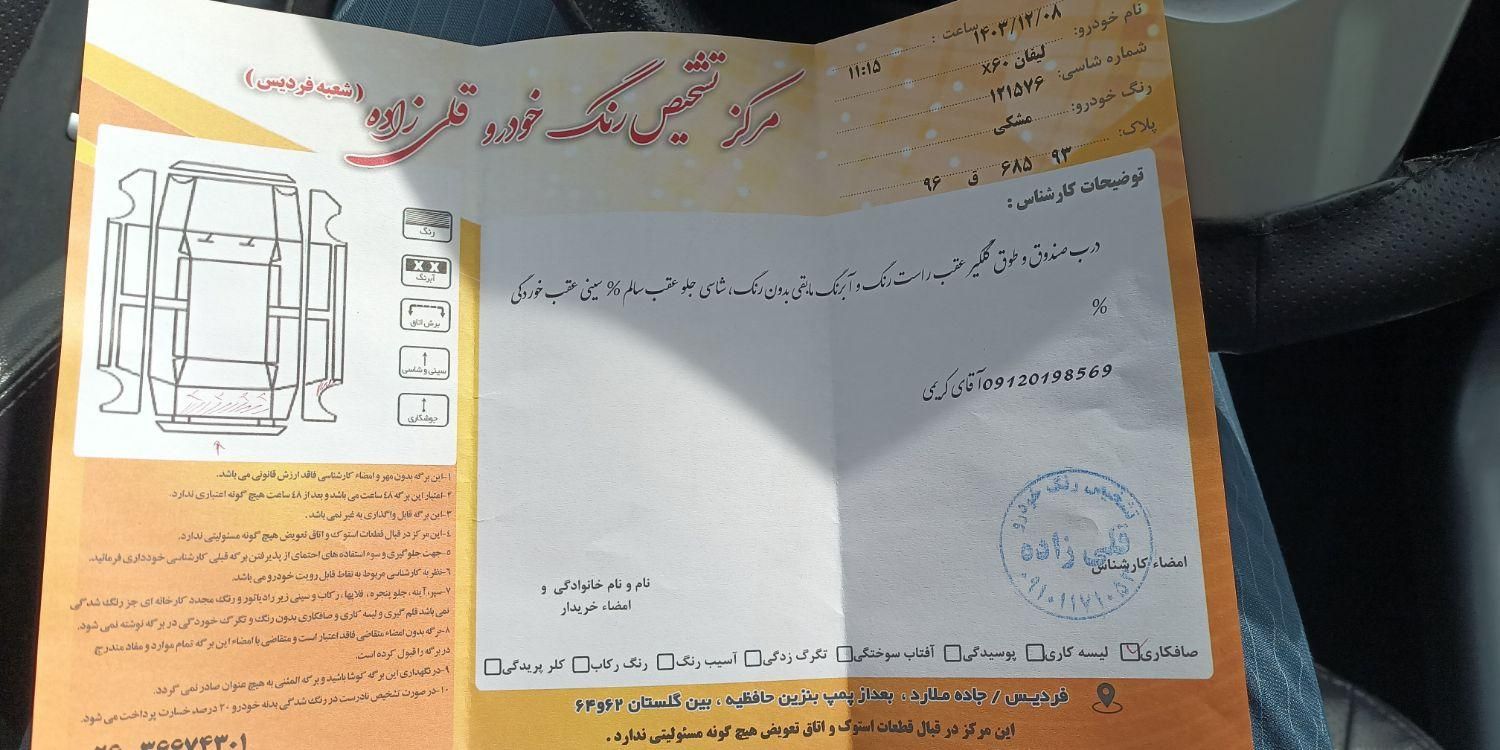 نام خودرو: ۱۴۰۳/۱۲/۰۸ ساعت :
شماره شاسی: لیفان x۶۰ ۱۱:۱۵
رنگ خودرو: ۱۲۱۵۷۶
پلاک: مشکی
۹۳ ۶۸۵ ق ۹۶
مرکز تشخیص رنگ خودرو قلی زاده (شعبه فردیس)
توضیحات کارشناس :
درب صندوق و طوق گلگیر عقب راست رنگ و آبرنگ مابقی بدون رنگ، شاسی جلو عقب سالم % سینی عقب خوردگی
%
09120198569آقای کریمی
رنگ
آبرنگ
برش اتاق
سینی و شاسی
جوشکاری
تشخیص رنگ خودرو
قلی زاده
امضاء کارشناس
نام و نام خانوادگی و
امضاء خریدار
صافکاری لیسه کاری پوسیدگی آفتاب سوختگی تگرگ زدگی آسیب رنگ رنگ رکاب کلر پریدگی
۱-این برگه بدون مهر و امضاء کارشناسی فاقد ارزش قانونی می باشد.
۲-اعتبار این برگه ۴۸ ساعت می باشد و بعد از ۴۸ ساعت هیچ گونه اعتباری ندارد.
۳-این برگه قابل واگذاری به غیر نمی باشد.
۴-این مرکز در قبال قطعات استوک و اتاق تعویض هیچ گونه مسئولیتی ندارد.
۵-جهت جلوگیری و سوء استفاده های احتمای از پذیرفتن برگه قبلی کارشناسی خودداری فرمائید.
۶-نظر به کارشناسی مربوط به نقاط قابل رویت خودرو می باشد.
۷-سپر، آینه، جلو پنجره، فلاپها، رکاب و سینی زیر رادیاتور و رنگ مجدد کارخانه ای جز رنگ شدگی
نمی باشد قلم گیری و لیسه کاری و صافکاری بدون رنگ و تگرگ خوردگی در برگه نوشته نمی شود.
۸-برگه بدون امضاء متقاضی فاقد اعتبار است و متقاضی با امضاء این برگه تمام موارد و مفاد مندرج
در برگه را قبول کرده است.
۹-در نگهداری این برگه کوشا باشید و برگه المثنی به هیچ عنوان صادر نمی گردد.
۱۰-در صورت تشخیص نادرست در رنگ شدگی بدنه خودرو ۲۰ درصد خسارت پرداخت می شود.
فردیس / جاده ملارد ، بعداز پمپ بنزین حافظیه ، بین گلستان ۶۲و۶۴
این مرکز در قبال قطعات استوک و اتاق تعویض هیچ گونه مسئولیتی ندارد .